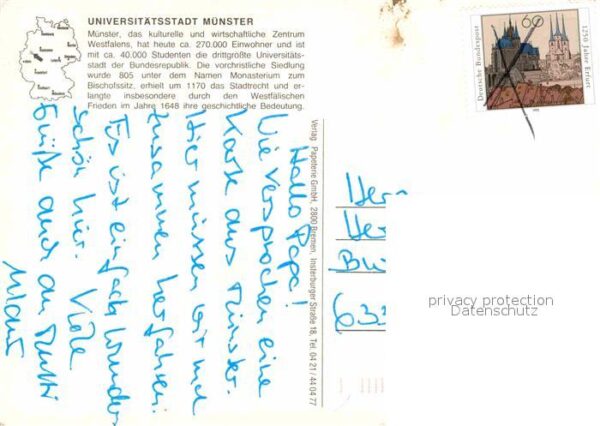 UNIVERSITÄTSSTADT MÜNSTER
Münster, das kulturelle und wirtschaftliche Zentrum
Westfalens, hat heute ca. 270.000 Einwohner und ist
mit ca. 40.000 Studenten die drittgrößte Universitäts-
stadt der Bundesrepublik. Die vorchristliche Siedlung
wurde 805 unter dem Namen Monasterium zum
Bischofssitz, erhielt um 1170 das Stadtrecht und er-
langte insbesondere durch den Westfälischen
Frieden im Jahre 1648 ihre geschichtliche Bedeutung.
Hallo Papa!
Wie versprochen eine
Karte aus Münster.
Hier müssen wir mal
zusammen herfahren.
Es ist einfach wunder
schön hier. Viele
Grüße auch an Mutti
Verlag Papeterie GmbH, 2800 Bremen, Insterburger Straße 18, Tel. 04 21 / 44 04 77
60
Deutsche Bundespost
1250 Jahre Erfurt
Herr
Her
633
privacy protection
Datenschutz